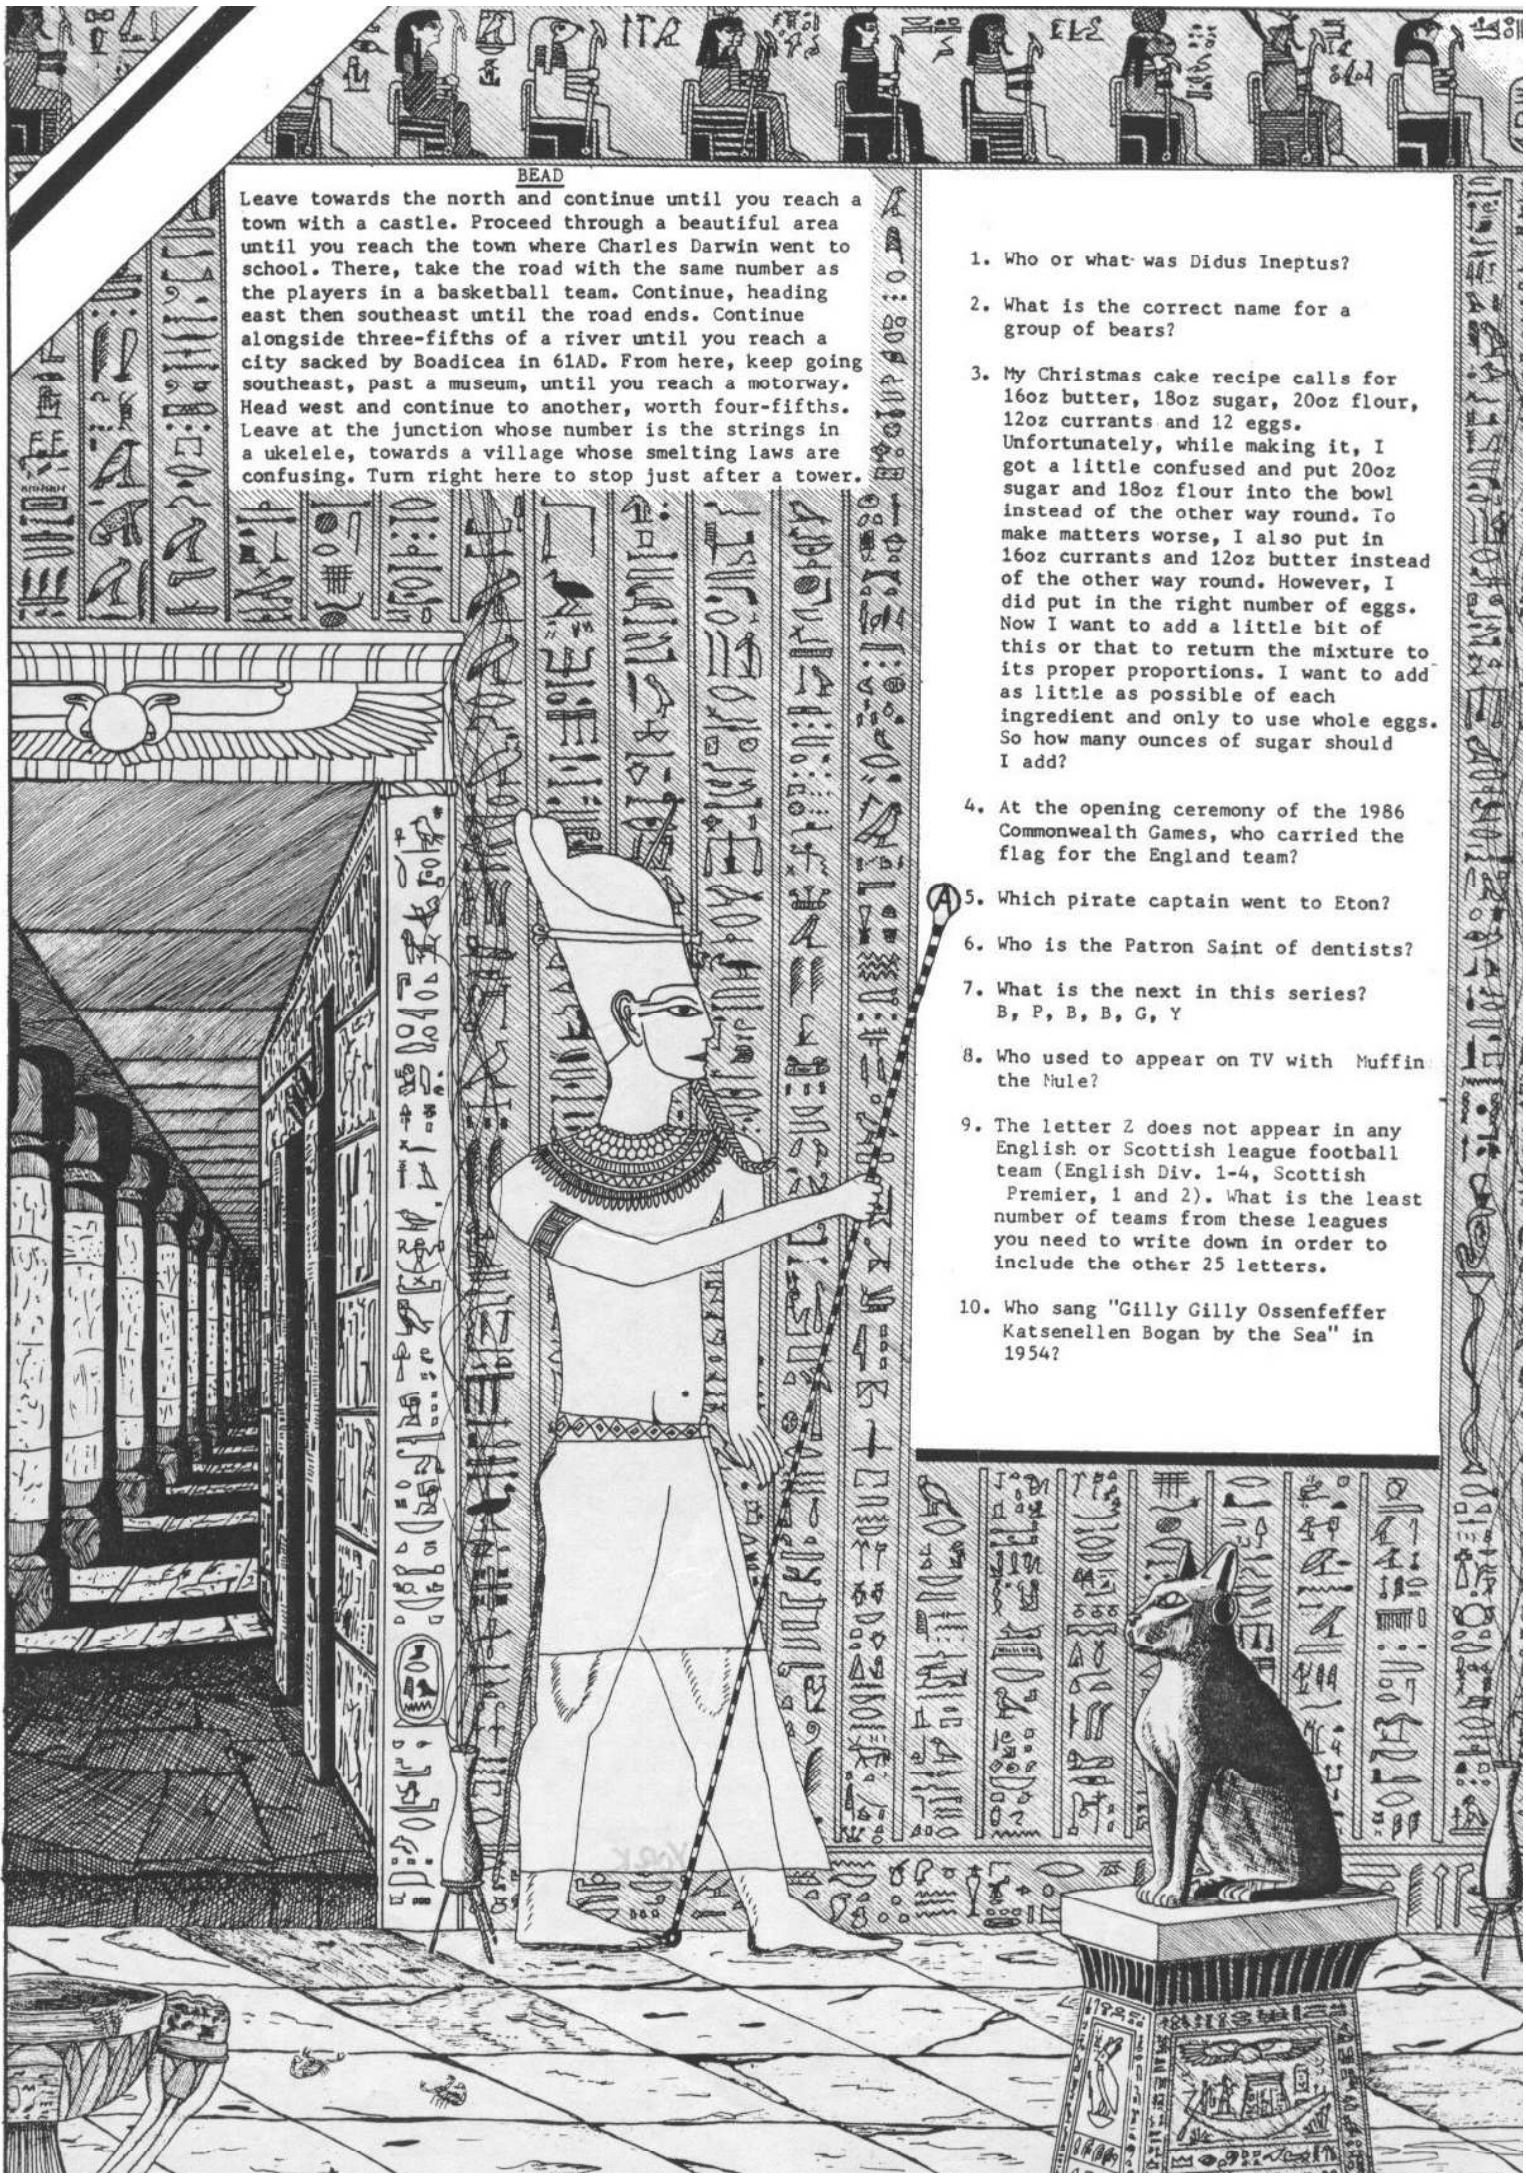 BEAD
Leave towards the north and continue until you reach a
town with a castle. Proceed through a beautiful area
until you reach the town where Charles Darwin went to
school. There, take the road with the same number as
the players in a basketball team. Continue, heading
east then southeast until the road ends. Continue
alongside three-fifths of a river until you reach a
city sacked by Boadicea in 61AD. From here, keep going
southeast, past a museum, until you reach a motorway.
Head west and continue to another, worth four-fifths.
Leave at the junction whose number is the strings in
a ukelele, towards a village whose smelting laws are
confusing. Turn right here to stop just after a tower.
1. Who or what was Didus Ineptus?
2. What is the correct name for a
group of bears?
3. My Christmas cake recipe calls for
16oz butter, 18oz sugar, 20oz flour,
12oz currants and 12 eggs.
Unfortunately, while making it, I
got a little confused and put 20oz
sugar and 18oz flour into the bowl
instead of the other way round. To
make matters worse, I also put in
16oz currants and 12oz butter instead
of the other way round. However, I
did put in the right number of eggs.
Now I want to add a little bit of
this or that to return the mixture to
its proper proportions. I want to add
as little as possible of each
ingredient and only to use whole eggs.
So how many ounces of sugar should
I add?
4. At the opening ceremony of the 1986
Commonwealth Games, who carried the
flag for the England team?
A
5. Which pirate captain went to Eton?
6. Who is the Patron Saint of dentists?
7. What is the next in this series?
B, P, B, B, G, Y
8. Who used to appear on TV with Muffin
the Mule?
9. The letter Z does not appear in any
English or Scottish league football
team (English Div. 1-4, Scottish
Premier, 1 and 2). What is the least
number of teams from these leagues
you need to write down in order to
include the other 25 letters.
10. Who sang "Gilly Gilly Ossenfeffer
Katsenellen Bogan by the Sea" in
1954?